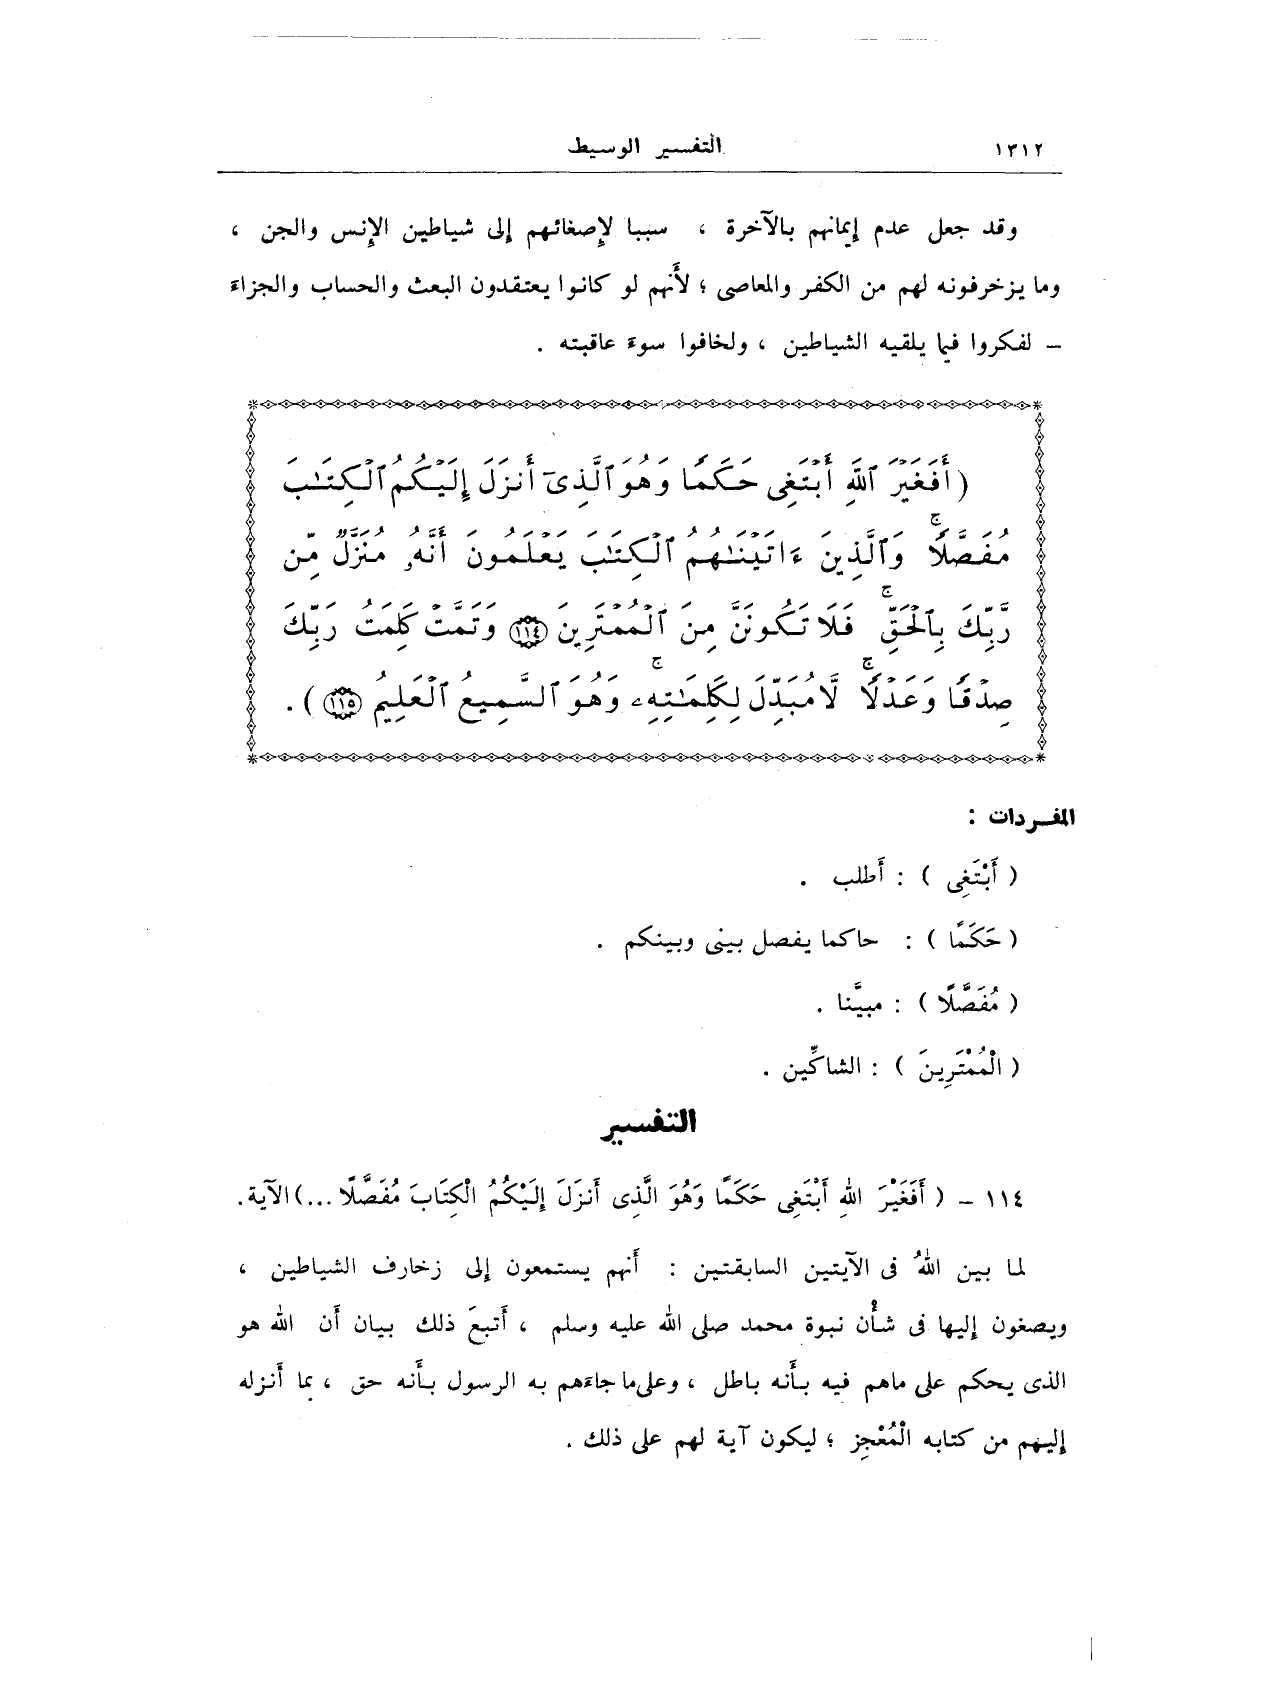 ١٣١٢ التفسير الوسيط
وقد جعل عدم إيمانهم بالآخرة ، سببا لإصغائهم إلى شياطين الإنس والجن ،
وما يزخرفونه لهم من الكفر والمعاصى ؛ لأنهم لو كانوا يعتقدون البعث والحساب والجزاء
– لفكروا فيما يلقيه الشياطين ، ولخافوا سوء عاقبته .
( أَفَغَيْرَ ٱللَّهِ أَبْتَغِى حَكَمًا وَهُوَ ٱلَّذِىٓ أَنزَلَ إِلَيْكُمُ ٱلْكِتَٰبَ
مُفَصَّلًا ۚ وَٱلَّذِينَ ءَاتَيْنَٰهُمُ ٱلْكِتَٰبَ يَعْلَمُونَ أَنَّهُۥ مُنَزَّلٌ مِّن
رَّبِّكَ بِٱلْحَقِّ ۖ فَلَا تَكُونَنَّ مِنَ ٱلْمُمْتَرِينَ ١١٤ وَتَمَّتْ كَلِمَتُ رَبِّكَ
صِدْقًا وَعَدْلًا ۚ لَّا مُبَدِّلَ لِكَلِمَٰتِهِۦ ۚ وَهُوَ ٱلسَّمِيعُ ٱلْعَلِيمُ ١١٥ ) .
المفردات :
( أَبْتَغِى ) : أَطلب .
( حَكَمًا ) : حاكما يفصل بينى وبينكم .
( مُفَصَّلًا ) : مبيَّنا .
( الْمُمْتَرِينَ ) : الشاكِّين .
التفسير
١١٤ – ( أَفَغَيْرَ اللهِ أَبْتَغِى حَكَمًا وَهُوَ الَّذِى أَنزَلَ إِلَيْكُمُ الْكِتَابَ مُفَصَّلًا ...) الآية.
لما بين اللهُ فى الآيتين السابقتين : أَنهم يستمعون إلى زخارف الشياطين ،
ويصغون إليها فى شأْن نبوة محمد صلى الله عليه وسلم ، أَتبعَ ذلك بيان أَن الله هو
الذى يحكم على ماهم فيه بأَنه باطل ، وعلى ما جاءهم به الرسول بأَنه حق ، بما أَنزله
إليهم من كتابه الْمُعْجِز ؛ ليكون آية لهم على ذلك .